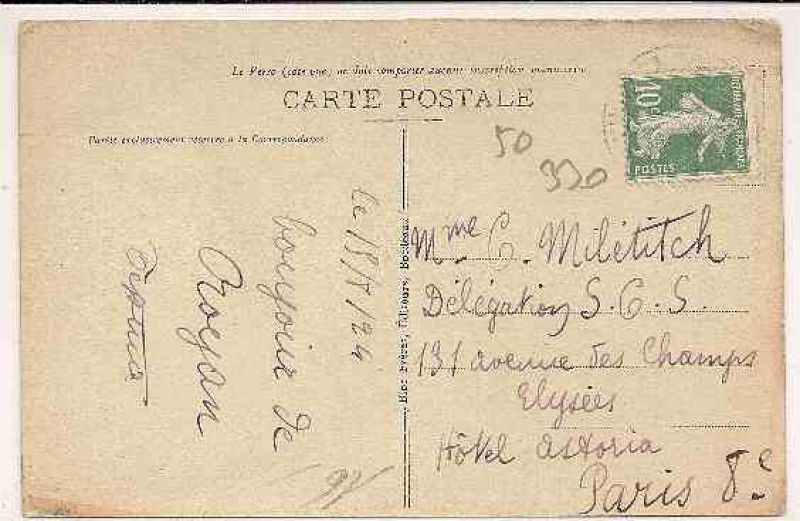 Le Verso (côté vue) ne doit comporter aucune inscription manuscrite
CARTE POSTALE
Partie exclusivement réservée à la Correspondance
10c
POSTES
50
330
le 15/8/24
bonjour de
Royan
Mme C. Milétitch
Délégation S.C.S.
131 avenue des Champs
Elysées
Hôtel Astoria
Paris 8e
Frères, Éditeurs, Bordeaux